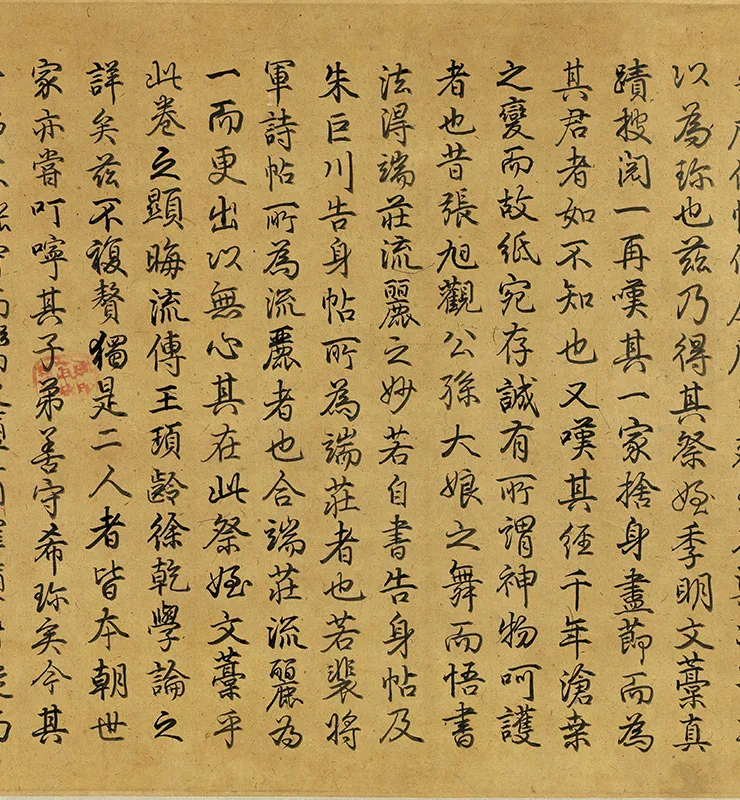 以為珎也茲乃得其祭姪季明文藁真
蹟披閱一再嘆其一家捨身盡節而為
其君者如不知也又嘆其經千年滄桒
之變而故紙宛存誠有所謂神物呵護
者也昔張旭觀公孫大娘之舞而悟書
法得端莊流麗之妙若自書告身帖及
朱巨川告身帖所為端莊者也若裴將
軍詩帖所為流麗者也合端莊流麗為
一而更出以無心其在此祭姪文藁乎
此卷之顯晦流傳王頊齡徐乾學論之
詳矣茲不複贅獨是二人者皆本朝世
家亦嘗叮嚀其子弟善守希珎矣今其